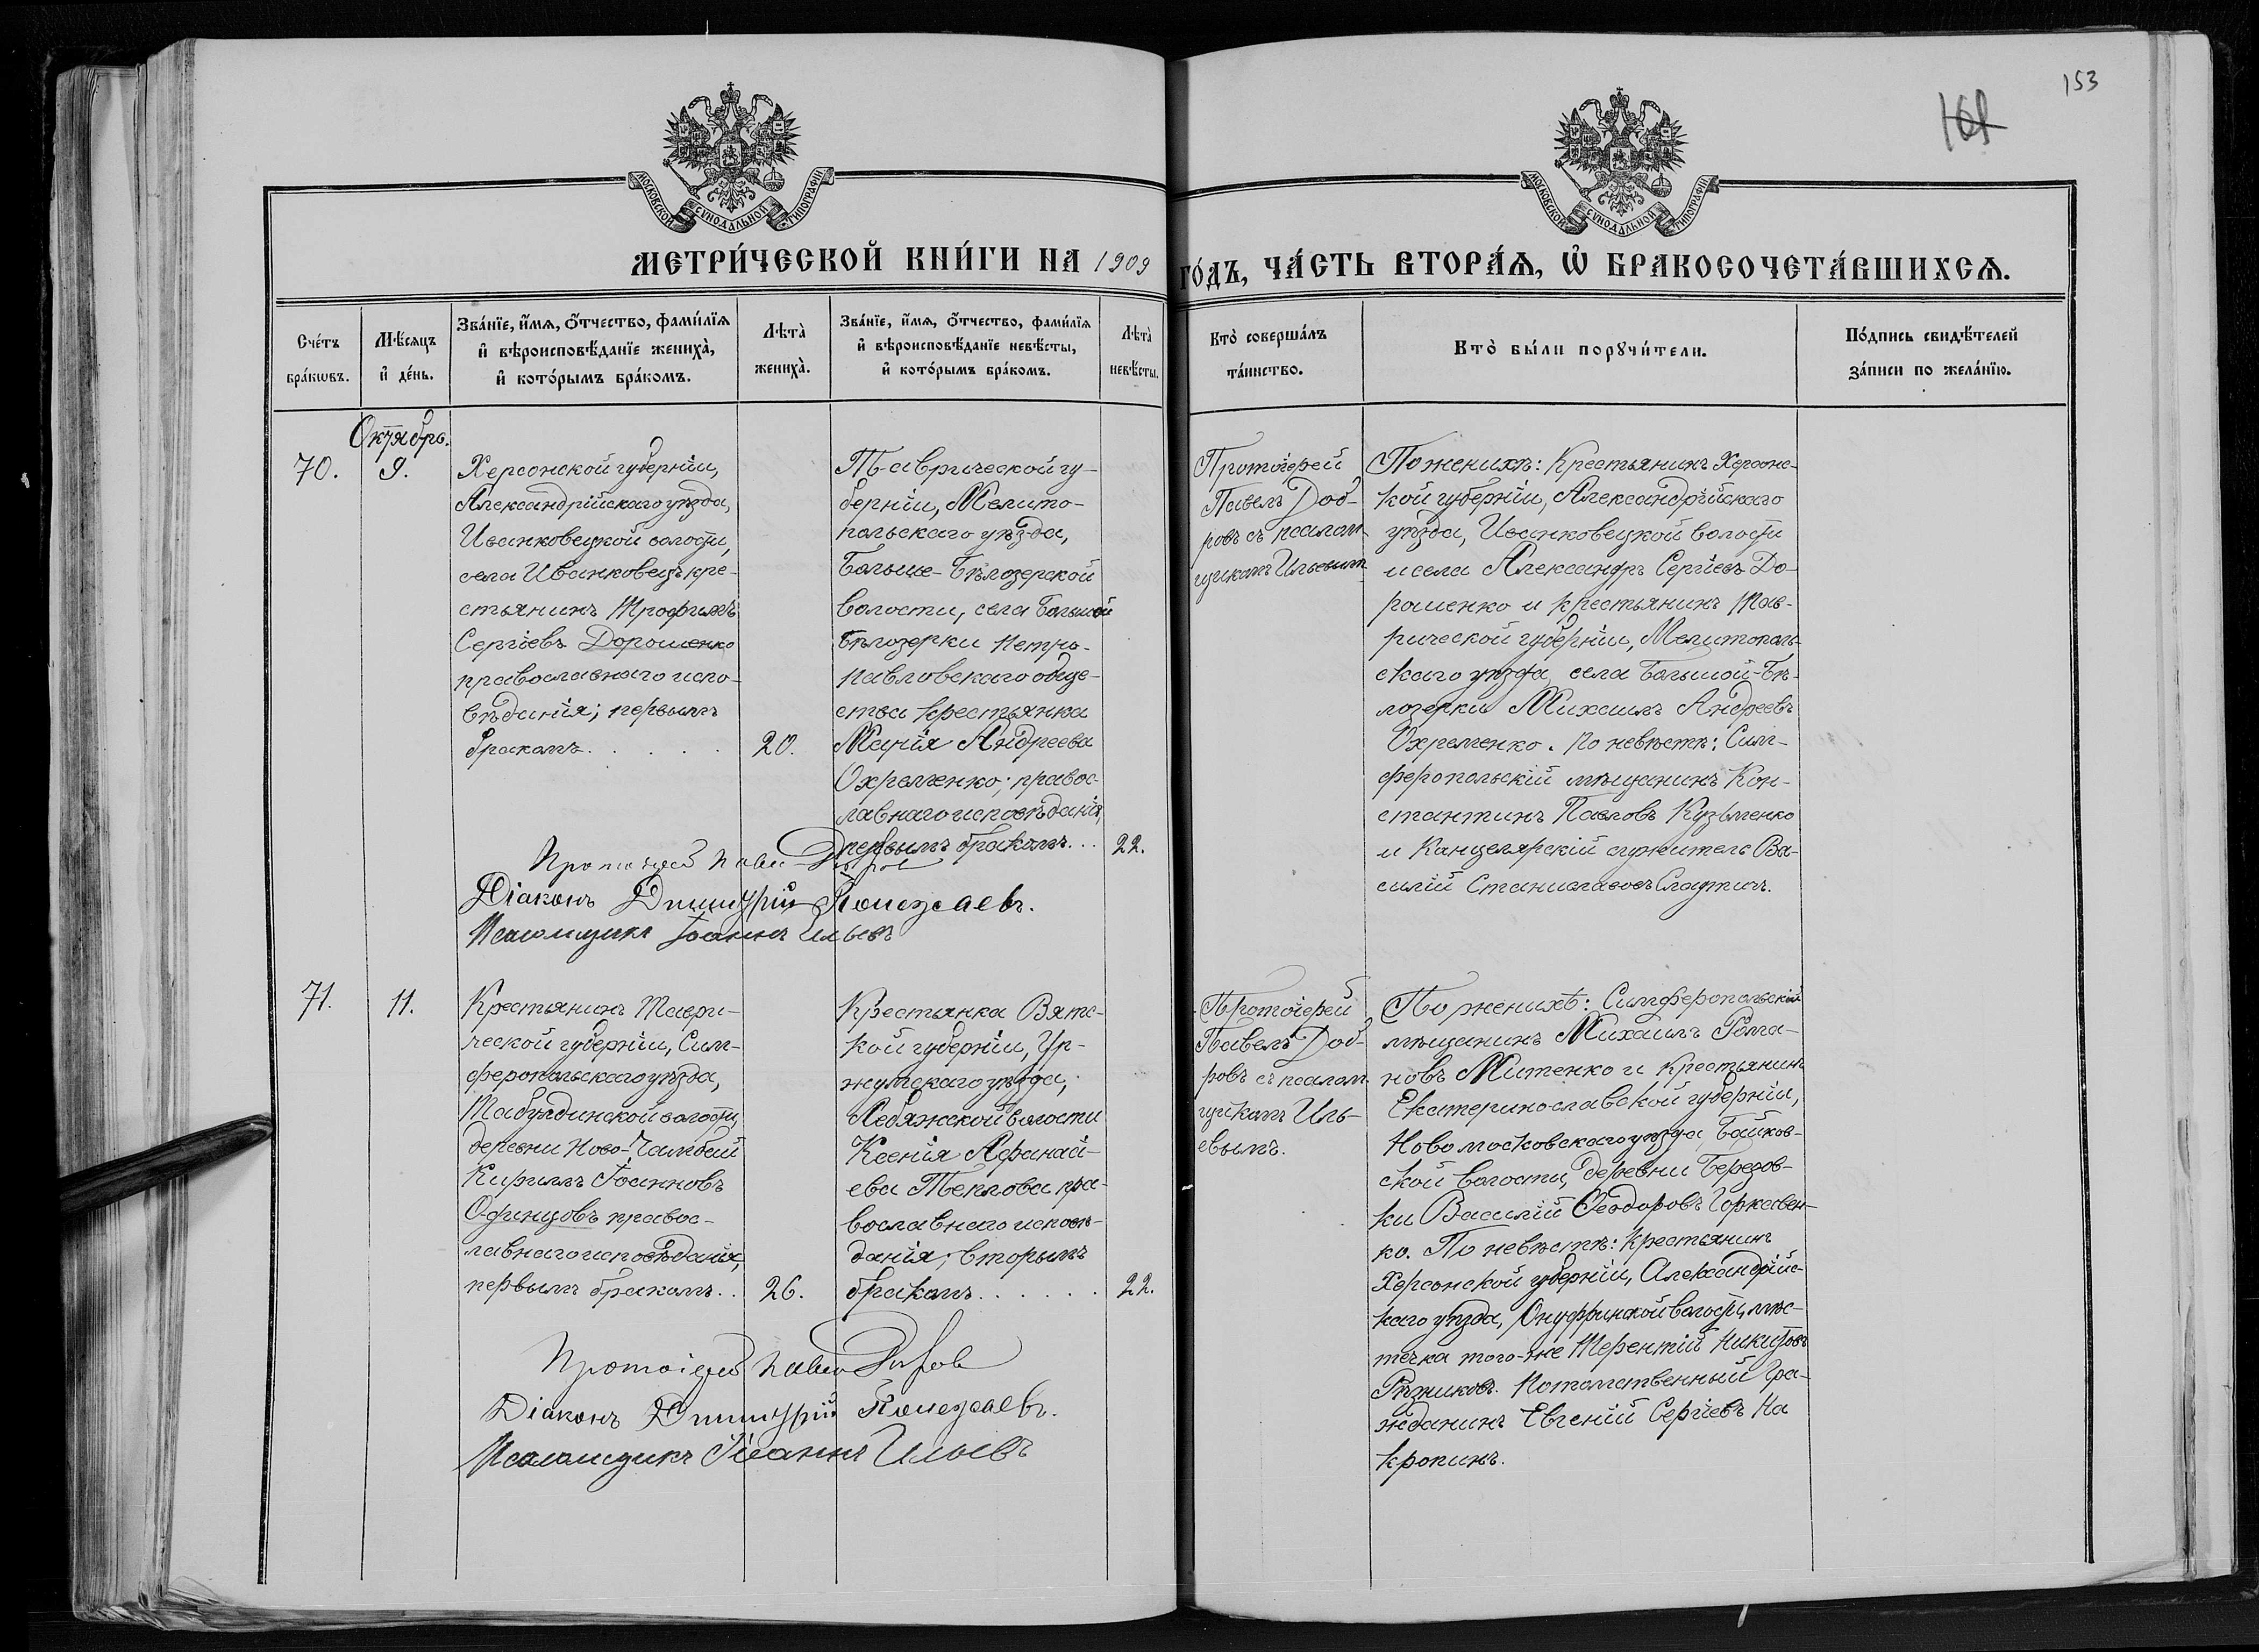 153
МОСКОВСКОЙ СѴНОДАЛЬНОЙ ТИПОГРАФІИ
МОСКОВСКОЙ СѴНОДАЛЬНОЙ ТИПОГРАФІИ
МЕТРИ́ЧЕСКОЙ КНИ́ГИ НА 1909 ГО́ДЪ, ЧА́СТЬ ВТОРА́Ѧ, Ѡ҆ БРАКОСОЧЕТА́ВШИХСѦ.
Сче́тъ
бра́кѡвъ.
Мѣ́сѧцъ
и҆ де́нь.
Зва́нїе, и҆́мѧ, ѻ҆́тчество, фами́лїѧ
и҆ вѣроисповѣ́данїе жениха̀,
и҆ кото́рымъ бра́комъ.
Лѣта̀
жениха̀.
Зва́нїе, и҆́мѧ, ѻ҆́тчество, фами́лїѧ
и҆ вѣроисповѣ́данїе невѣ́сты,
и҆ кото́рымъ бра́комъ.
Лѣта̀
невѣ́сты.
Кто̀ соверша́лъ
та́инство.
Кто̀ бы́ли порꙋчи́тели.
По́дпись свидѣ́телей
за́писи по жела́нїю.
Октябрь.
70.
9.
Херсонской губерніи,
Александрійскаго уѣзда,
Иванковецкой волости,
села Иванковецъ кре-
стьянинъ Трофимъ
Сергіевъ Дорошенко
православнаго испо-
вѣданія; первымъ
бракомъ. . . . .
20.
Таврической гу-
берніи, Мелито-
польскаго уѣзда,
Больше-Бѣлозерской
волости, села Большой
Бѣлозерки Петро-
павловскаго обще-
ства крестьянка
Марія Андреева
Охременко; правос-
лавнаго исповѣданія,
первымъ бракомъ. . .
22.
Протоіерей
Павелъ Доб-
ровъ съ псалом-
щикомъ Ильевымъ
По женихѣ: Крестьянинъ Херсонс-
кой губерніи, Александрійскаго
уѣзда, Иванковецкой волости
и села Александръ Сергіевъ До-
рошенко и крестьянинъ Тав-
рической губерніи, Мелитополь-
скаго уѣзда, села Большой-Бѣ-
лозерки Михаилъ Андреевъ
Охременко. По невѣстѣ: Сим-
феропольскій мѣщанинъ Кон-
стантинъ Павловъ Кузьменко
и Канцелярскій служитель Ва-
силій Станиславовъ
Протоіерей Павел Добров
Діаконъ Димитрій
Псаломщикъ Іоаннъ Ильевъ
71.
11.
Крестьянинъ Таври-
ческой губерніи, Сим-
феропольскаго уѣзда,
Табулдинской волости,
деревни Ново-Чамбай
Кириллъ Іоанновъ
Одинцовъ правос-
лавнаго исповѣданія,
первымъ бракомъ. .
26.
Крестьянка Вятс-
кой губерніи, Ур-
жумскаго уѣзда,
Лебяжской волости
Ксенія Афанасі-
ева Теплова пра-
вославнаго исповѣ-
данія; вторымъ
бракомъ. . . . . .
22.
Протоіерей
Павелъ Доб-
ровъ съ псалом-
щикомъ Иль-
евымъ.
По женихѣ: Симферопольскій
мѣщанинъ Михаилъ Рома-
новъ Митенко и крестьянинъ
Екатеринославской губерніи,
Новомосковскаго уѣзда, Байков-
ской волости, деревни Березов-
ки Василій Ѳеодоровъ Горкавен-
ко. По невѣстѣ: крестьянинъ
Херсонской губерніи, Александрійс-
каго уѣзда, Онуфріевской волости, мѣс-
течка того-же Терентій Никитовъ
Рѣзниковъ. Потомственный Гра-
жданинъ Евгеній Сергіевъ На
кропинъ.
Протоіерей Павел Добров
Діаконъ Димитрій
Псаломщикъ Іоаннъ Ильевъ